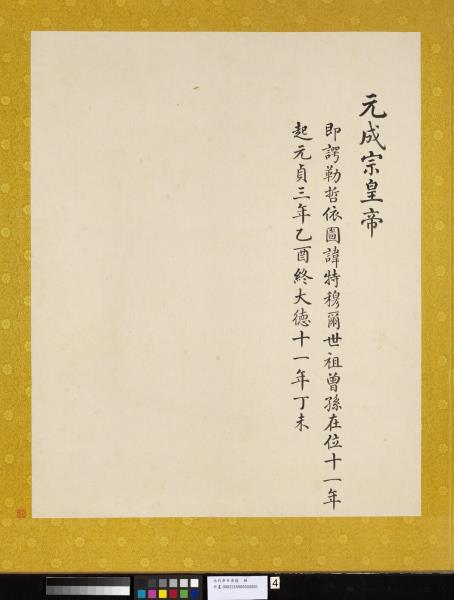 元成宗皇帝
即諤勒哲依圖諱特穆爾世祖曾孫在位十一年
起元貞三年乙酉終大德十一年丁未
4